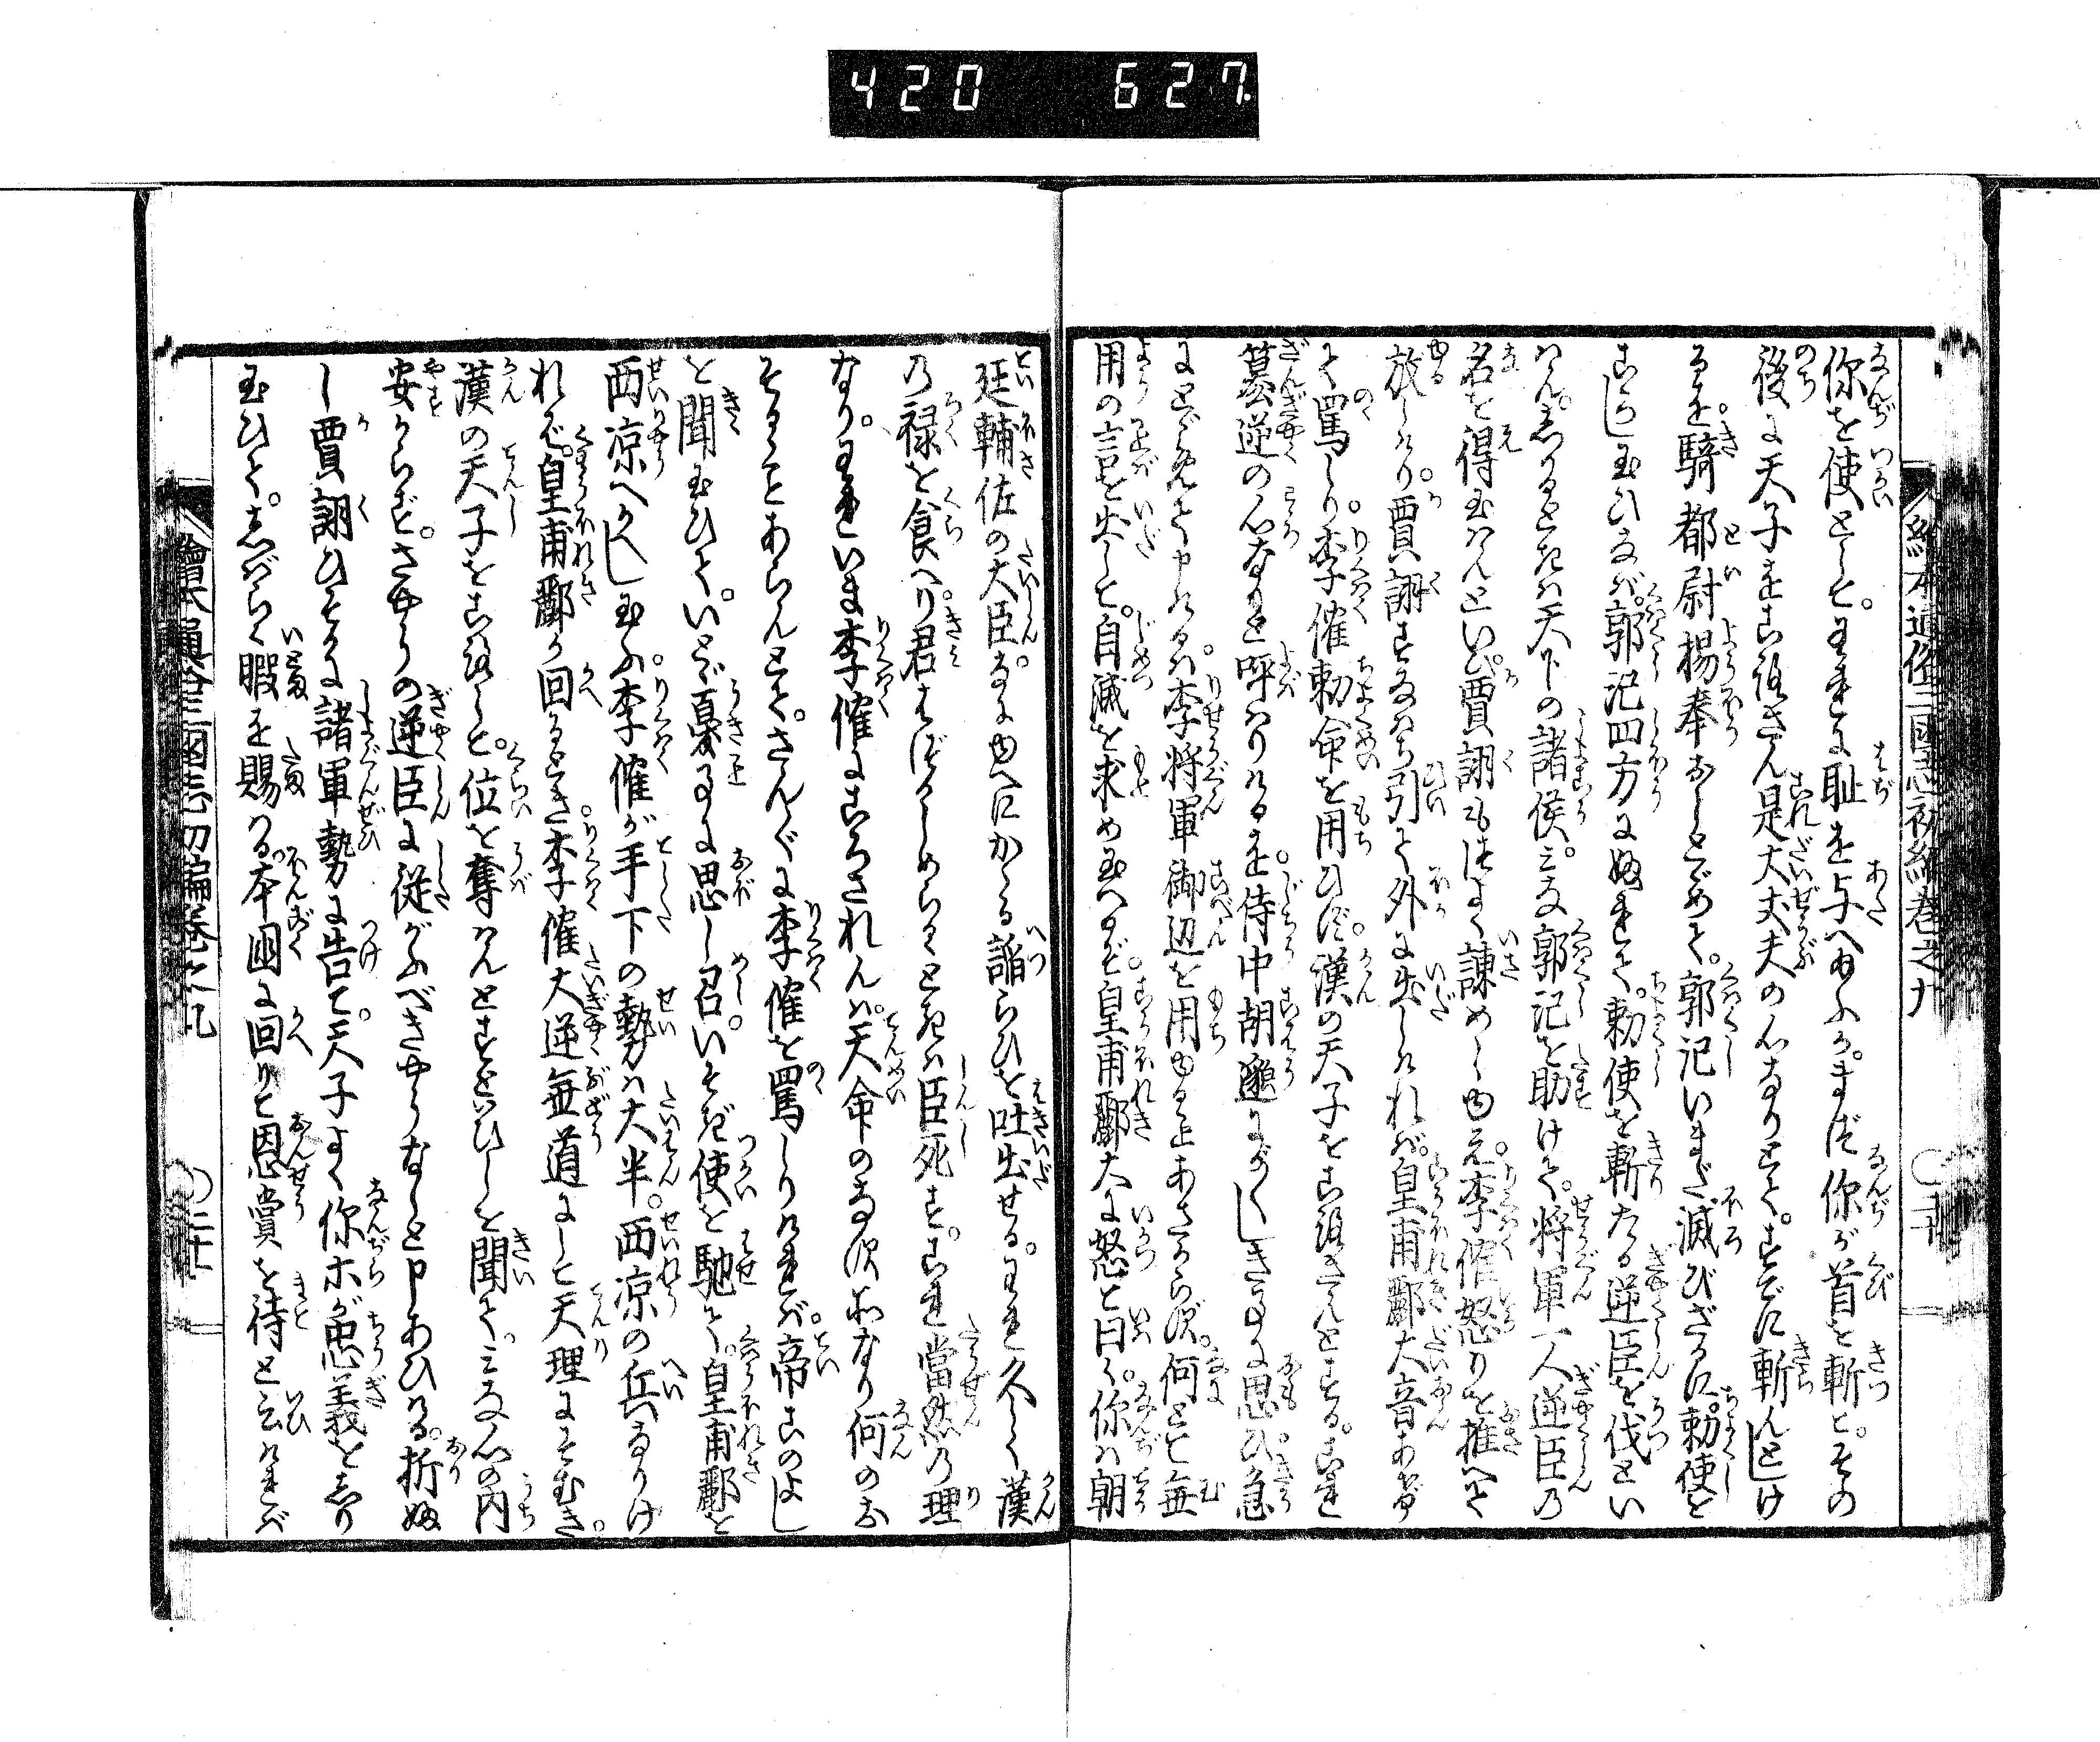 420 627
繪本通俗三國志初編巻之九
你を使として。われに耻を与へ給ふか。まづ你が首を斬て。その
後に天子をころさん是大丈夫の心なりとて。すでに斬んとしけ
るを。騎都尉楊奉おしとゞめて。郭汜いまだ滅びざるに。勅使を
ころし玉ひなば。郭汜四方にふれて。勅使を斬たる逆臣を伐とい
はん。しかるときは天下の諸侯。みな郭汜を助けて。将軍一人逆臣の
名を得玉はんといふ。賈詡もつよく諌めしゆえ。李傕怒りを推へて
放しけり。賈詡すなはち引て外に出しければ。皇甫酈大音あげ
て罵しり。李傕勅命を用ひず。漢の天子をころさんとする。これ
簒逆の心なりと呼はりけるを。侍中胡邈にがしきことに思ひ。急
にとゞめて申けるは。李将軍御辺を用ゆることあさからず。何とて無
用の言を出して。自滅を求め玉へるぞ。皇甫酈大に怒て曰く。你は朝
廷輔佐の大臣。なにゆへにかゝる諂らひを吐出せる。われ久しく漢
の禄を食へり。君はづかしめらるゝときは臣死す。これ當然の理
なり。われいま李傕にころされんは。天命のなす所なり何のお
そるゝことあらんとて。さんざんに李傕を罵しりければ。帝このよし
を聞玉ひて。いとゞ憂ことに思し召。いそぎ使を馳て。皇甫酈を
西凉へかへし玉ふ。李傕が手下の勢は大半。西凉の兵なりけ
れば。皇甫酈が回るとき。李傕大逆無道にして天理にそむき。
漢の天子をころして。位を奪はんとすといひしを聞て。みな心の内
安からず。さやうの逆臣に従がふべきやうなしと申あひける。折ふ
し賈詡ひそかに諸軍勢に告て。天子よく你ホが忠義をしり
玉ひて。しばらく暇を賜ける。本国に回りて恩賞を待と云ければ
繪本通俗三國志初編巻之九
〇二十